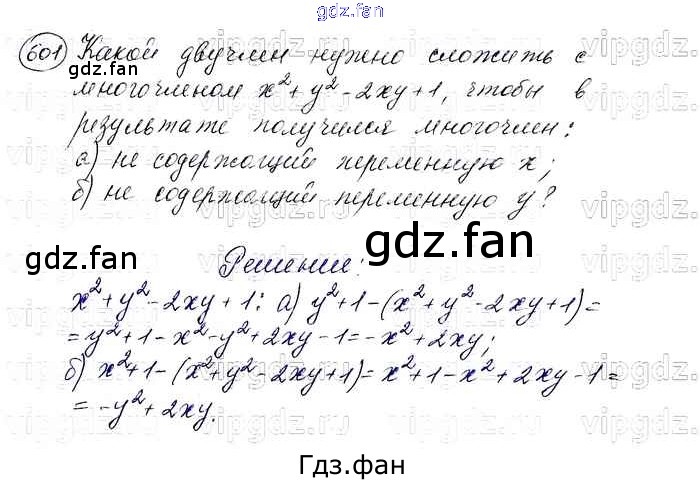 gdz.fan
601 Какой двучлен нужно сложить с
gdz.fan
многочленом x²+y²-2xy+1, чтобы в
результате получился многочлен:
а) не содержащий переменную x;
б) не содержащий переменную y?
gdz.fan
gdz.fan
gdz.fan
Решение:
x²+y²-2xy+1: а) y²+1-(x²+y²-2xy+1)=
=y²+1-x²-y²+2xy-1=-x²+2xy;
б) x²+1-(x²+y²-2xy+1)=x²+1-x²+2xy-1=
=-y²+2xy.
Гдз.фан